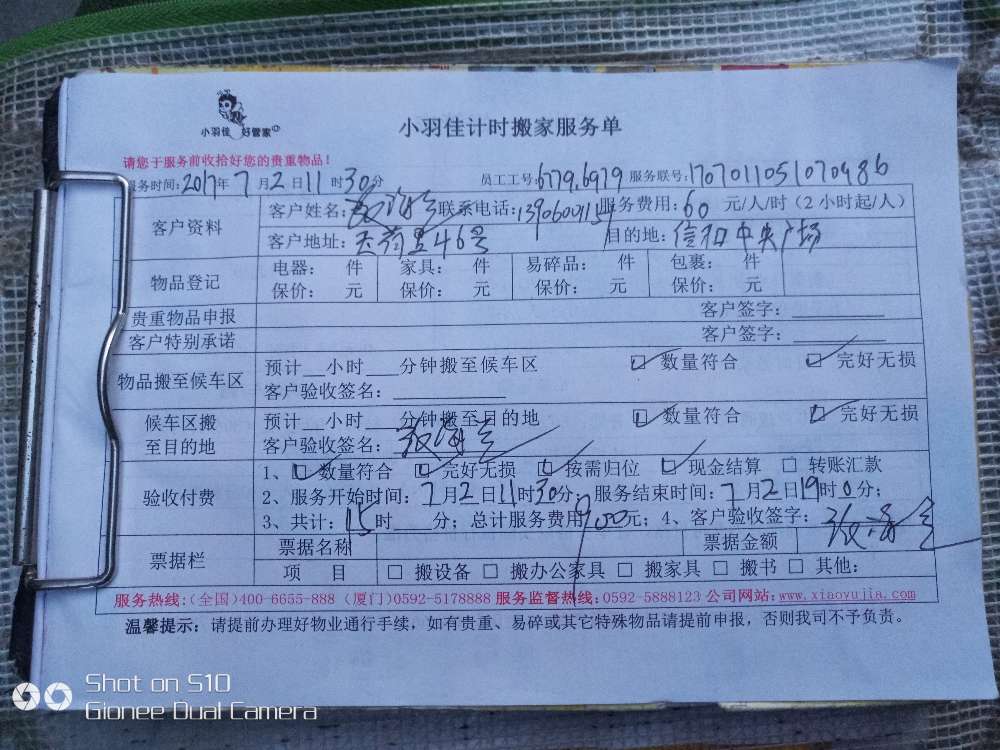 小羽佳 好管家
小羽佳计时搬家服务单
请您于服务前收拾好您的贵重物品！
服务时间:2017年7月2日11时30分 员工工号:6779.6979 服务联号:1707011051070986
客户资料 客户姓名: 联系电话: 服务费用:60元/人/时(2小时起/人)
客户地址: 46号 目的地:信和中央广场
物品登记 电器: 件 家具: 件 易碎品: 件 包裹: 件
保价: 元 保价: 元 保价: 元 保价: 元
贵重物品申报 客户签字:
客户特别承诺 客户签字:
物品搬至候车区 预计__小时___分钟搬至候车区 ☑数量符合 ☑完好无损
客户验收签名:
候车区搬至目的地 预计__小时___分钟搬至目的地 ☑数量符合 ☑完好无损
客户验收签名:
验收付费 1、☑数量符合 ☑完好无损 ☑按需归位 ☑现金结算 □转账汇款
2、服务开始时间:7月2日11时30分; 服务结束时间:7月2日19时0分;
3、共计:15时___分; 总计服务费用900元; 4、客户验收签字:
票据栏 票据名称 票据金额
项 目 □搬设备 □搬办公家具 □搬家具 □搬书 □其他:
服务热线:(全国)400-6655-888 (厦门)0592-5178888 服务监督热线:0592-5888123 公司网站:www.xiaoyujia.com
温馨提示: 请提前办理好物业通行手续，如有贵重、易碎或其它特殊物品请提前申报，否则我司不予负责。
Shot on S10
Gionee Dual Camera